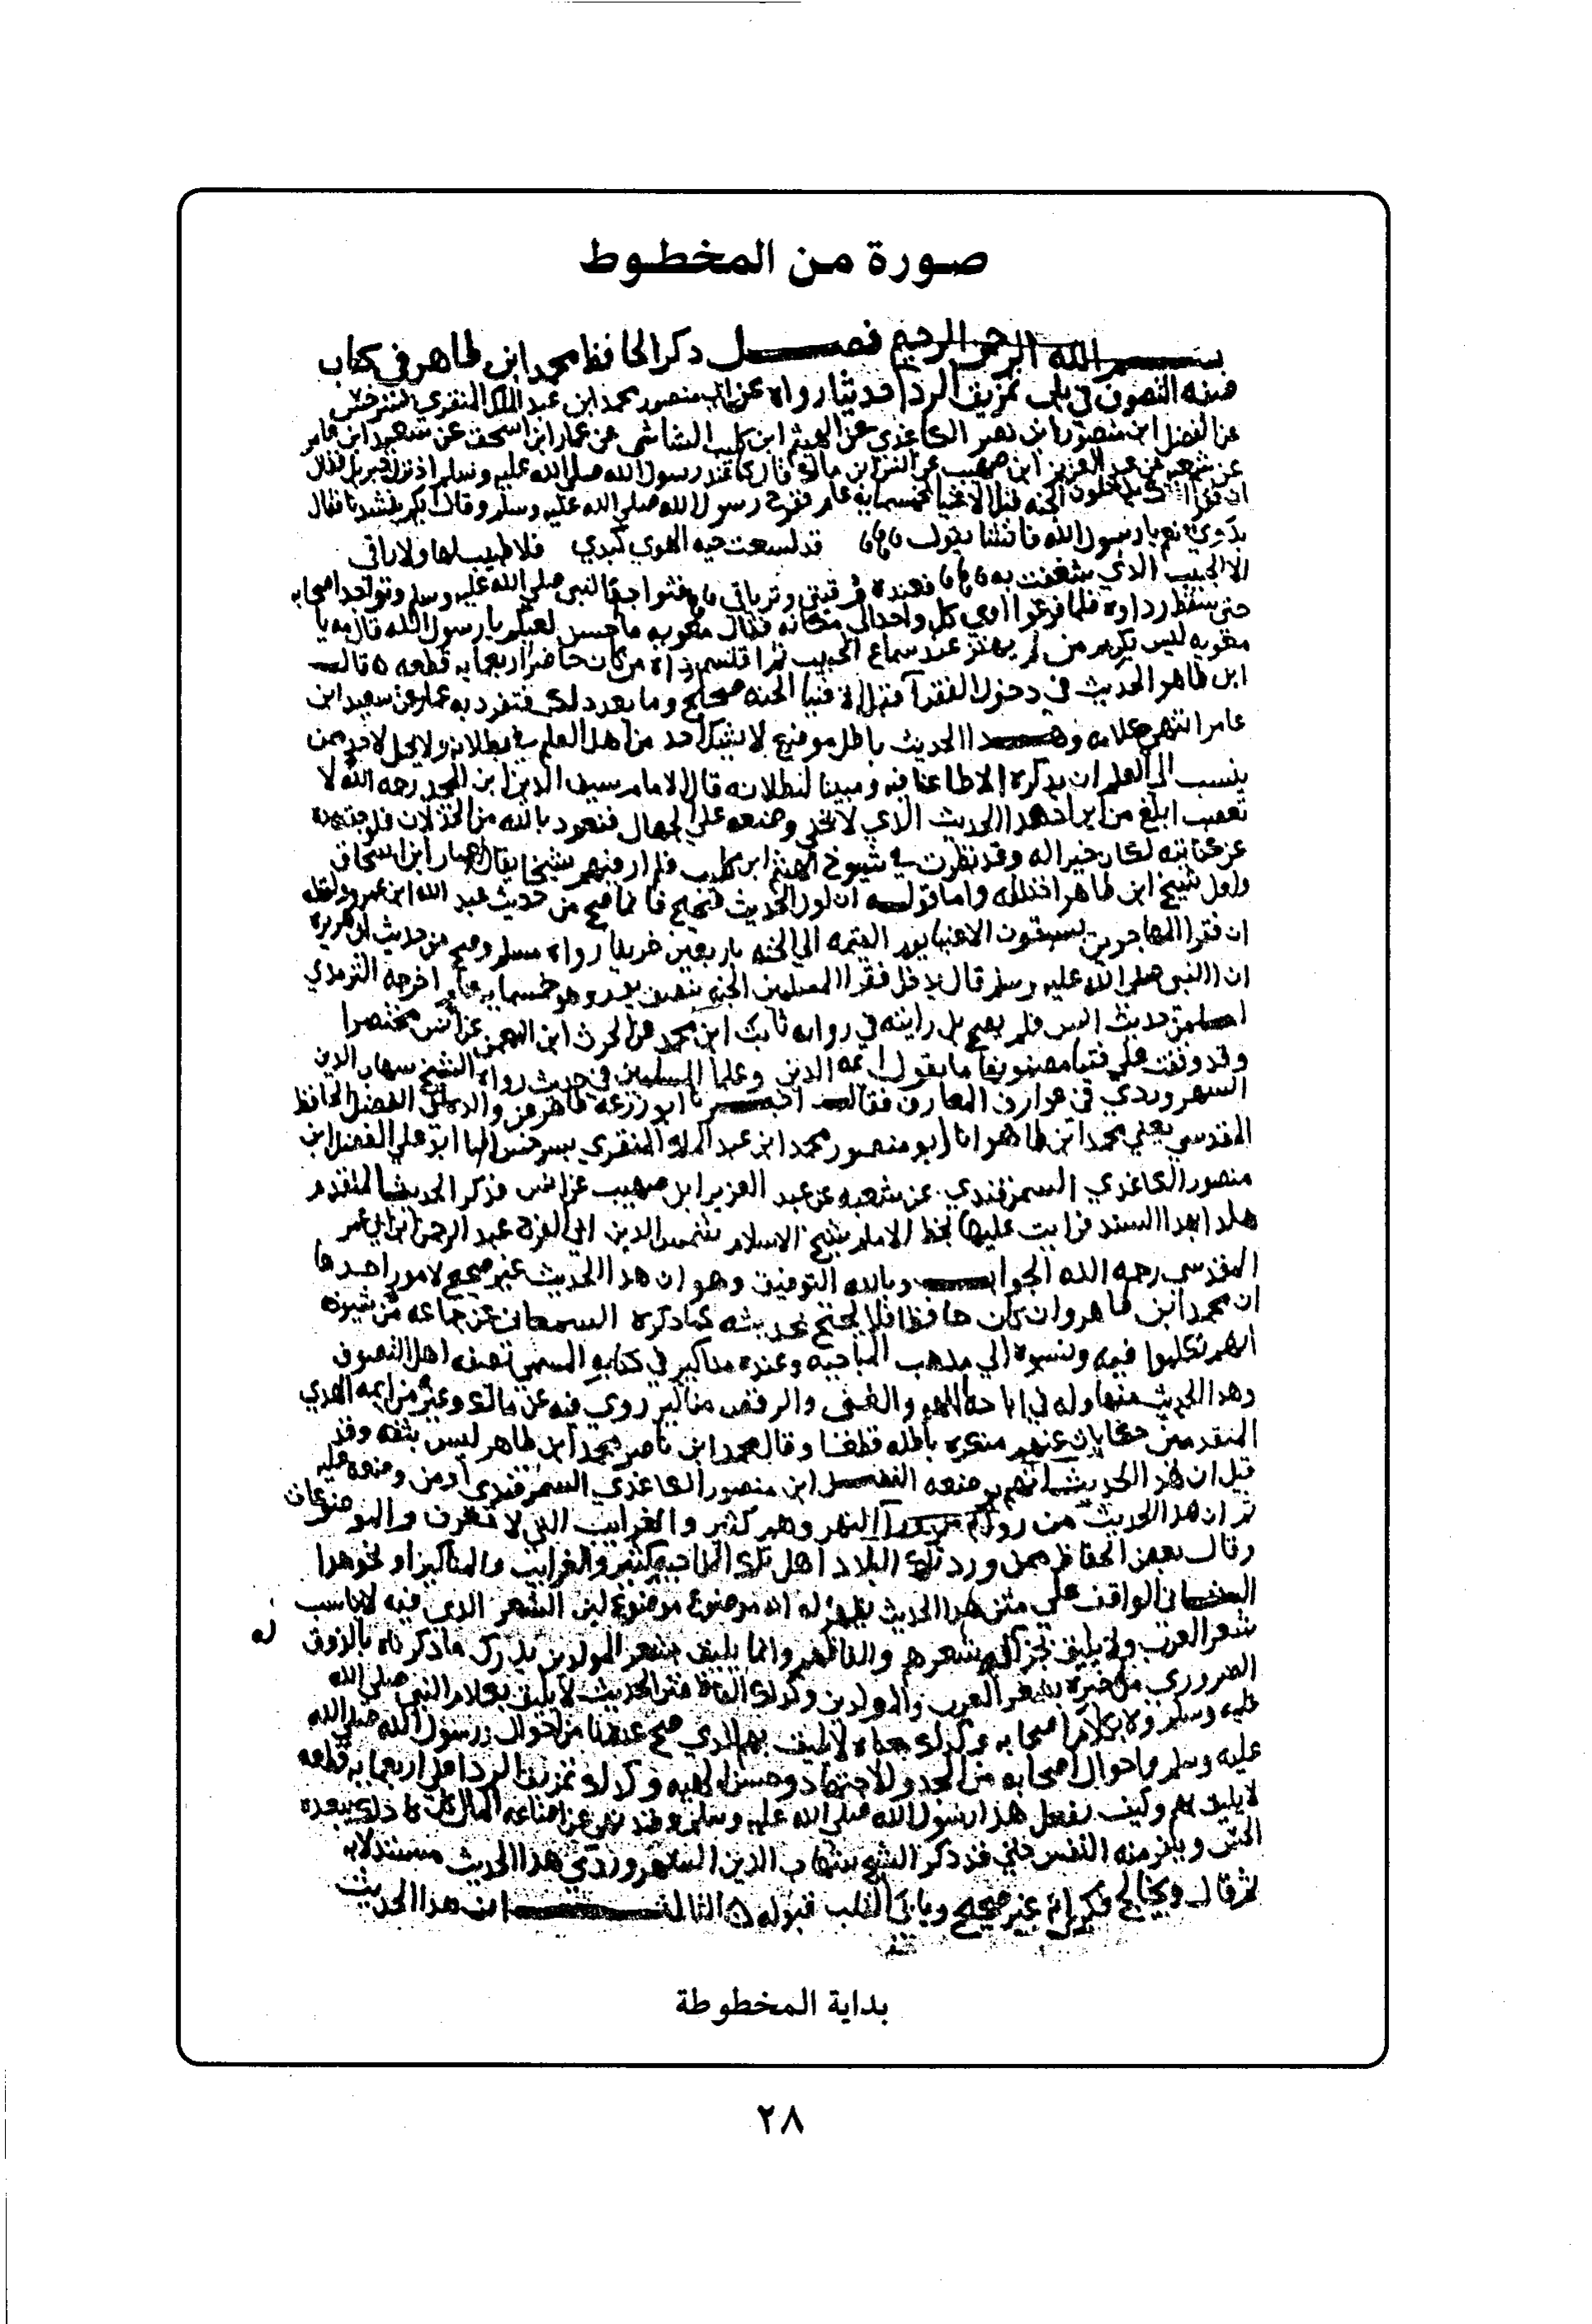 صورة من المخطوط
بسم الله الرحمن الرحيم فصل ذكر الحافظ محمد ابن طاهر في كتاب
صفة التصوف في باب تمزيق الردا حديثا رواه عن ابي منصور محمد ابن عبد الملك المنقري بسرخس
عن الفضل ابن منصور ابن نصر الكاغذي عن الهيثم ابن كليب الشاشي عن عمار ابن اسحق عن سعيد ابن عامر
عن شعبه عن عبد العزيز ابن صهيب عن انس ابن مالك قال كنا عند رسول الله صلي الله عليه وسلم اذ نزل جبريل فقال
ان فقرا يدخلون الجنه قبل الاغنيا بخمسمايه عام ففرح رسول الله صلي الله عليه وسلم وقال
بدوي نعم يا رسول الله فانشا يقول قد لسعت حيه الهوي كبدي فلا طبيب لها ولا راقي
الا الحبيب الذي شغفت به فعنده رقيتي وترياقي فتواجد النبي صلي الله عليه وسلم وتواجد اصحابه
حتي سقط رداوه فلما فرغوا اوي كل واحد الي مكانه فقال معويه ما احسن لعبكم يا رسول الله قال مه يا
معويه ليس بكريم من لم يهتز عند سماع الحبيب ثم اقتسم رداه من كان حاضرا اربعمايه قطعه قال
ابن طاهر الحديث في دخول الفقرا قبل الاغنيا الجنه صحيح وما بعد ذلك فتفرد به عمار عن سعيد ابن
عامر انتهي كلامه وهذا الحديث باطل موضوع لا يشك احد من اهل العلم في بطلانه ولا يحل لاحد ممن
ينسب الي العلم ان يذكره الا طاعنا فيه ومبينا لبطلانه قال الامام سيف الدين ابن المجد رحمه الله لا
تعصب ابلغ من ايراد هذا الحديث الذي لا يخفي وضعه علي الجهال فنعوذ بالله من الخذلان
عن كتابته لكان خيرا له وقد نظرت في شيوخ الهيثم ابن كليب فلم ار فيهم شيخا يقال له عمار ابن اسحاق
ولعل شيخ ابن طاهر اختلقه واما قوله ان اول الحديث صحيح فانما صح من حديث عبد الله ابن عمرو ولفظه
ان فقرا المهاجرين يسبقون الاغنيا يوم القيمه الي الجنه باربعين خريفا رواه مسلم وصح من حديث ابي هريره
ان النبي صلي الله عليه وسلم قال يدخل فقرا المسلمين الجنه بنصف يوم وهو خمسمايه عام اخرجه الترمذي
من حديث انس فلم يصح بل رايته في روايه ثابت ابن محمد عن الحرث ابن النعمن عن انس مختصرا
وقد وقفت علي فتيا مضمونها ما يقول ائمه الدين وعلما المسلمين في حديث رواه الشيخ شهاب الدين
السهروردي في عوارف المعارف فقال اخبرنا ابو زرعه طاهر عن والده ابي الفضل الحافظ
المقدسي يعني محمد ابن طاهر انا ابو منصور محمد ابن عبد الملك المنقري بسرخس انا ابو علي الفضل ابن
منصور الكاغذي السمرقندي عن شعبه عن عبد العزيز ابن صهيب عن انس فذكر الحديث المتقدم
هكذا بهذا السند فرايت عليها بخط الامام شيخ الاسلام شمس الدين ابي الفرج عبد الرحمن ابن ابي عمر
المقدسي رحمه الله الجواب وبالله التوفيق وهو ان هذا الحديث غير صحيح لامور احدها
ان محمد ابن طاهر وان كان حافظا فلا يحتج بحديثه كما ذكره السمعاني عن جماعه من شيوخه
انهم تكلموا فيه ونسبوه الي مذهب الاباحيه وعنده مناكير في كتابه المسمي بصفه اهل التصوف
وهذا الحديث منها وله في اباحه اللهو والغنى والرقص مناكير روي فيه عن مالك وغيره من ايمه الهدي
المتقدمين حكايات عنهم منكره باطله قطعا وقال محمد ابن ناصر محمد ابن طاهر ليس بثقه وقد
قيل ان هذا الحديث اتهم بوضعه الفضل ابن منصور الكاغذي السمرقندي
ثم ان هذا الحديث من روايه النهر وهم كثير والغرايب التي لا تعرف والموضوعات
وقال بعض الحفاظ ممن ورد تلك البلاد اهل تلك الناحيه كثير والغرايب والمناكير او نحو هذا
الواقف علي متن هذا الحديث يظهر له انه موضوع لان الشعر الذي فيه لا يناسب
شعر العرب ولا يليق بجزاله شعرهم والفاظهم وانما يليق بشعر المولدين يدرك ما ذكرناه بالذوق
الضروري من خبره بشعر العرب والمولدين وكذلك الفاظ متن الحديث لا يليق بكلام النبي صلي الله
عليه وسلم ولا بكلام اصحابه وكذلك معناه لا يليق بهم الذي صح عندنا من احوال رسول الله صلي الله
عليه وسلم واحوال اصحابه من الجد والاجتهاد وحسن الهيه وكذلك تمزيق الردا علي اربعمايه قطعه
لا يليق بهم وكيف يفعل هذا رسول الله صلي الله عليه وسلم وقد نهي عن اضاعه المال كل ذلك يبعده
الحس وينفر منه النفس حتي قد ذكر الشيخ شهاب الدين السهروردي هذا الحديث مستدلا به
ثم قال ويخالج فكري انه غير صحيح ويابي القلب قبوله الثالث ان هذا الحديث
بداية المخطوطة
٢٨